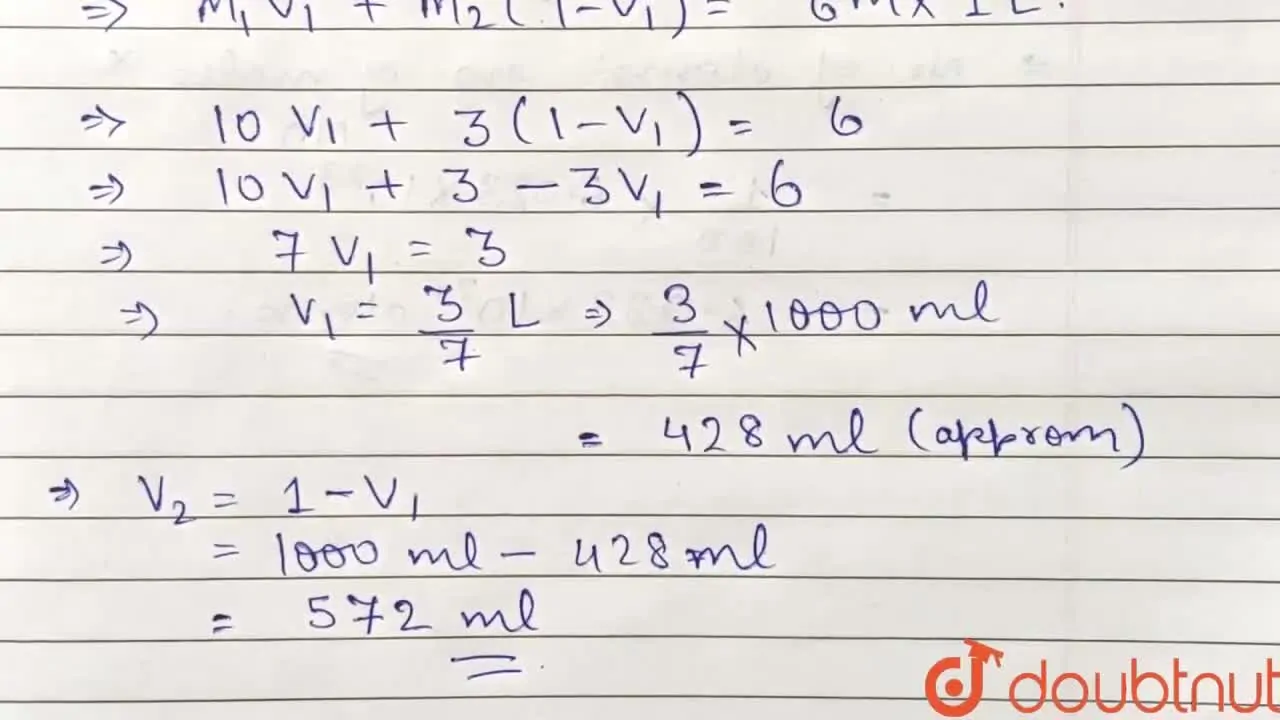 ⇒ M₁V₁ + M₂(1-V₁) = 6M×1L.
⇒ 10 V₁ + 3(1-V₁) = 6
⇒ 10V₁ + 3 - 3V₁ = 6
⇒ 7 V₁ = 3
⇒ V₁ = 3/7 L ⇒ 3/7 × 1000 ml
= 428 ml (approm)
⇒ V₂ = 1 - V₁
= 1000 ml - 428 ml
= 572 ml
doubtnut